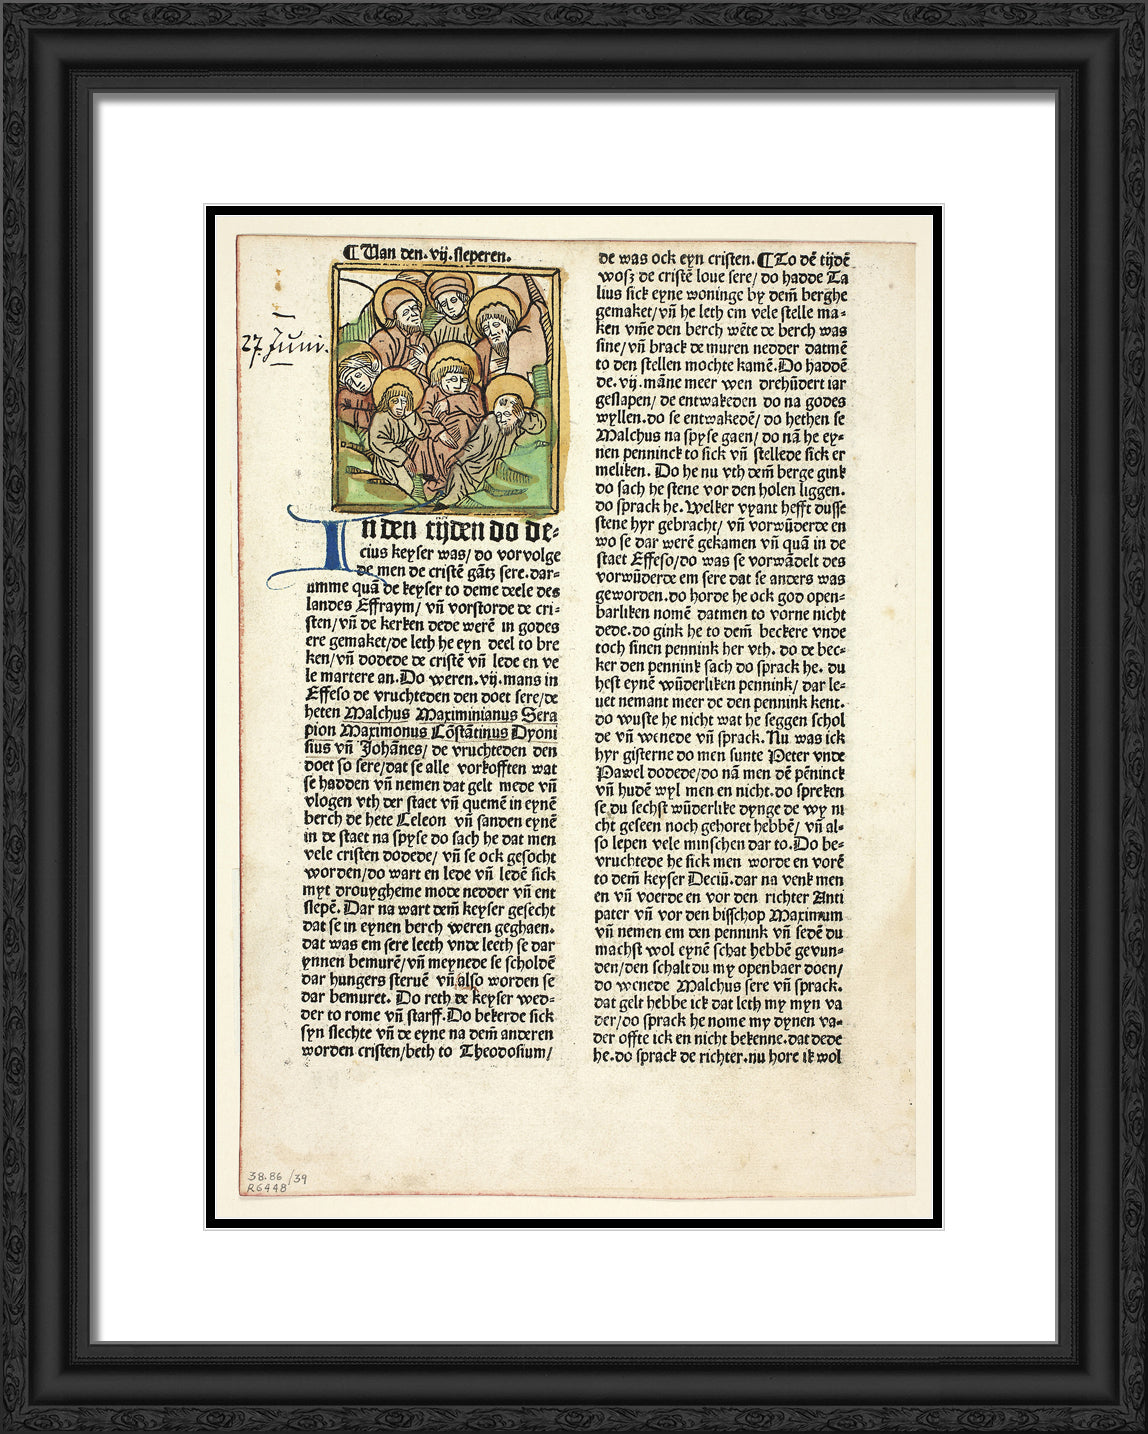 ¶ Uan den . vij . sleperen .
27. Juni.
In den tijden do de-
cius keyser was/ do vorvolge
de men de cristē gātz sere . dar-
umme quā de keyser to deme deele des
landes Effraym/ vñ vorstorde de cri-
sten/ vñ de kerken dede werē in godes
ere gemaket/ de leth he eyn deel to bre
ken/ vñ dodede de cristē vñ lede en ve
le martere an . Do weren . vij . mans in
Effeso de vruchteden den doet sere/ de
heten Malchus Maximinianus Sera
pion Maximonus Cōstātinus Dyoni
sius vñ Johānes/ de vruchteden den
doet so sere/ dat se alle vorkofften wat
se hadden vñ nemen dat gelt mede vñ
vlogen vth der staet vñ quemē in eynē
berch de hete Celeon vñ sanden eynē
in de staet na spyse do sach he dat men
vele cristen dodede/ vñ se ock gesocht
worden/ do wart en lede vñ ledē sick
myt drouygheme mode nedder vñ ent
slepē . Dar na wart dem̄ keyser gesecht
dat se in eynen berch weren gegheen .
dat was em sere leeth vnde leeth se dar
ynnen bemurē/ vñ meynede se scholdē
dar hungers steruē vñ also worden se
dar bemuret . Do reth de keyser wed-
der to rome vñ starff . Do bekerde sick
syn slechte vñ de eyne na dem̄ anderen
worden cristen/ beth to Theodosium/
de was ock eyn cristen . ¶ To dē tijdē
wosz de cristē loue sere/ do hadde Ta
lius sick eyne woninge by dem̄ berghe
gemaket/ vñ he leth em vele stelle ma-
ken vm̄e den berch wēte de berch was
sine/ vñ brack de muren nedder datmē
to den stellen mochte kamē . Do haddē
de . vij . māne meer wen drehūdert iar
geslapen/ de entwakeden do na godes
wyllen . do se entwakedē/ do hethen se
Malchus na spyse gaen/ do nā he ey-
nen penninck to sick vñ stellede sick er
meliken . Do he nu vth dem̄ berge gink
do sach he stene vor den holen liggen .
do sprack he . Welker vyant hefft dusse
stene hyr gebracht/ vñ vorwūderde en
wo se dar werē gekamen vñ quā in de
staet Effeso/ do was se vorwādelt des
vorwūderde em sere dat se anders was
geworden . do horde he ock god open-
barliken nomē datmen to vorne nicht
dede . do gink he to dem̄ beckere vnde
toch sinen pennink her vth . do de bec-
ker den pennink sach do sprack he . du
hest eynē wūderliken pennink/ dar le-
uet nemant meer de den pennink kent .
do wuste he nicht wat he seggen schol
de vñ wenede vñ sprack . Nu was ick
hyr gisterne do men sunte Peter vnde
Pawel dodede/ do nā men dē pēninck
vñ hudē wyl men en nicht . do spreken
se du sechst wūderlike dynge de wy ni
cht geseen noch gehoret hebbē/ vñ al-
so lepen vele minschen dar to . Do be-
vruchtede he sick men worde en vorē
to dem̄ keyser Deciū . dar na venk men
en vñ voerde en vor den richter Anti
pater vñ vor den bisschop Maximum
vñ nemen em den pennink vñ sedē du
machst wol eynē schat hebbē gevun-
den/ den schalt du my openbaer doen/
do wenede Malchus sere vñ sprack .
dat gelt hebbe ick dat leth my myn va
der/ do sprack he nome my dynen va-
der offte ick en nicht bekenne . dat dede
he . do sprack de richter . nu hore ik wol
38.86/39
R6448